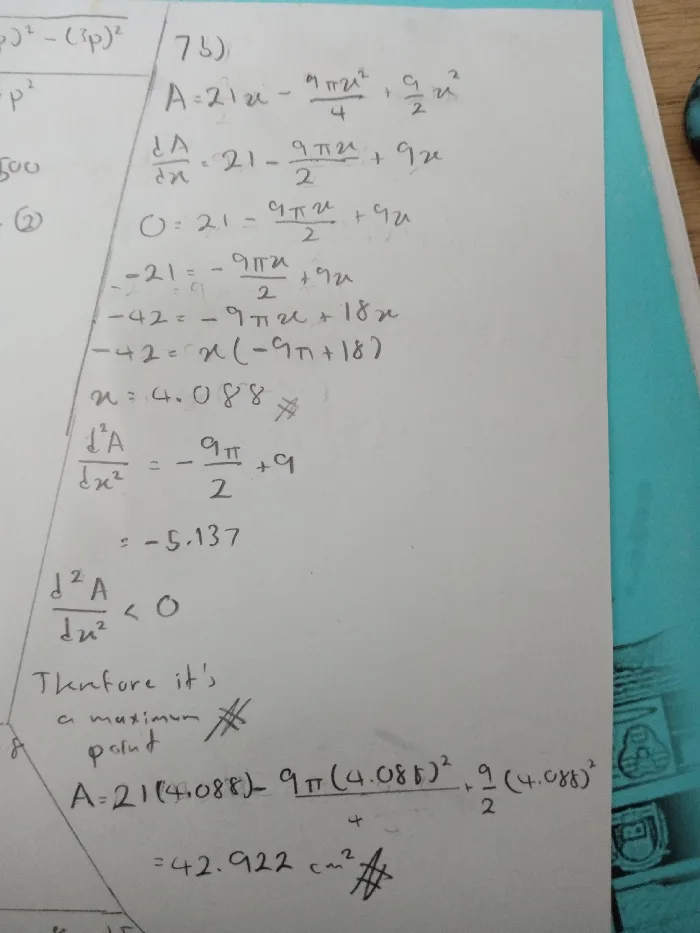 p)² - (3p)²
p²
500
- ②
7b)
A = 21x - 9πx²/4 + 9/2 x²
dA/dx = 21 - 9πx/2 + 9x
0 = 21 - 9πx/2 + 9x
-21 = -9πx/2 + 9x
-42 = -9πx + 18x
-42 = x(-9π + 18)
x = 4.088
d²A/dx² = -9π/2 + 9
= -5.137
d²A/dx² < 0
Therefore it's
a maximum
point
8
A = 21(4.088) - 9π(4.088)²/4 + 9/2 (4.088)²
= 42.922 cm²